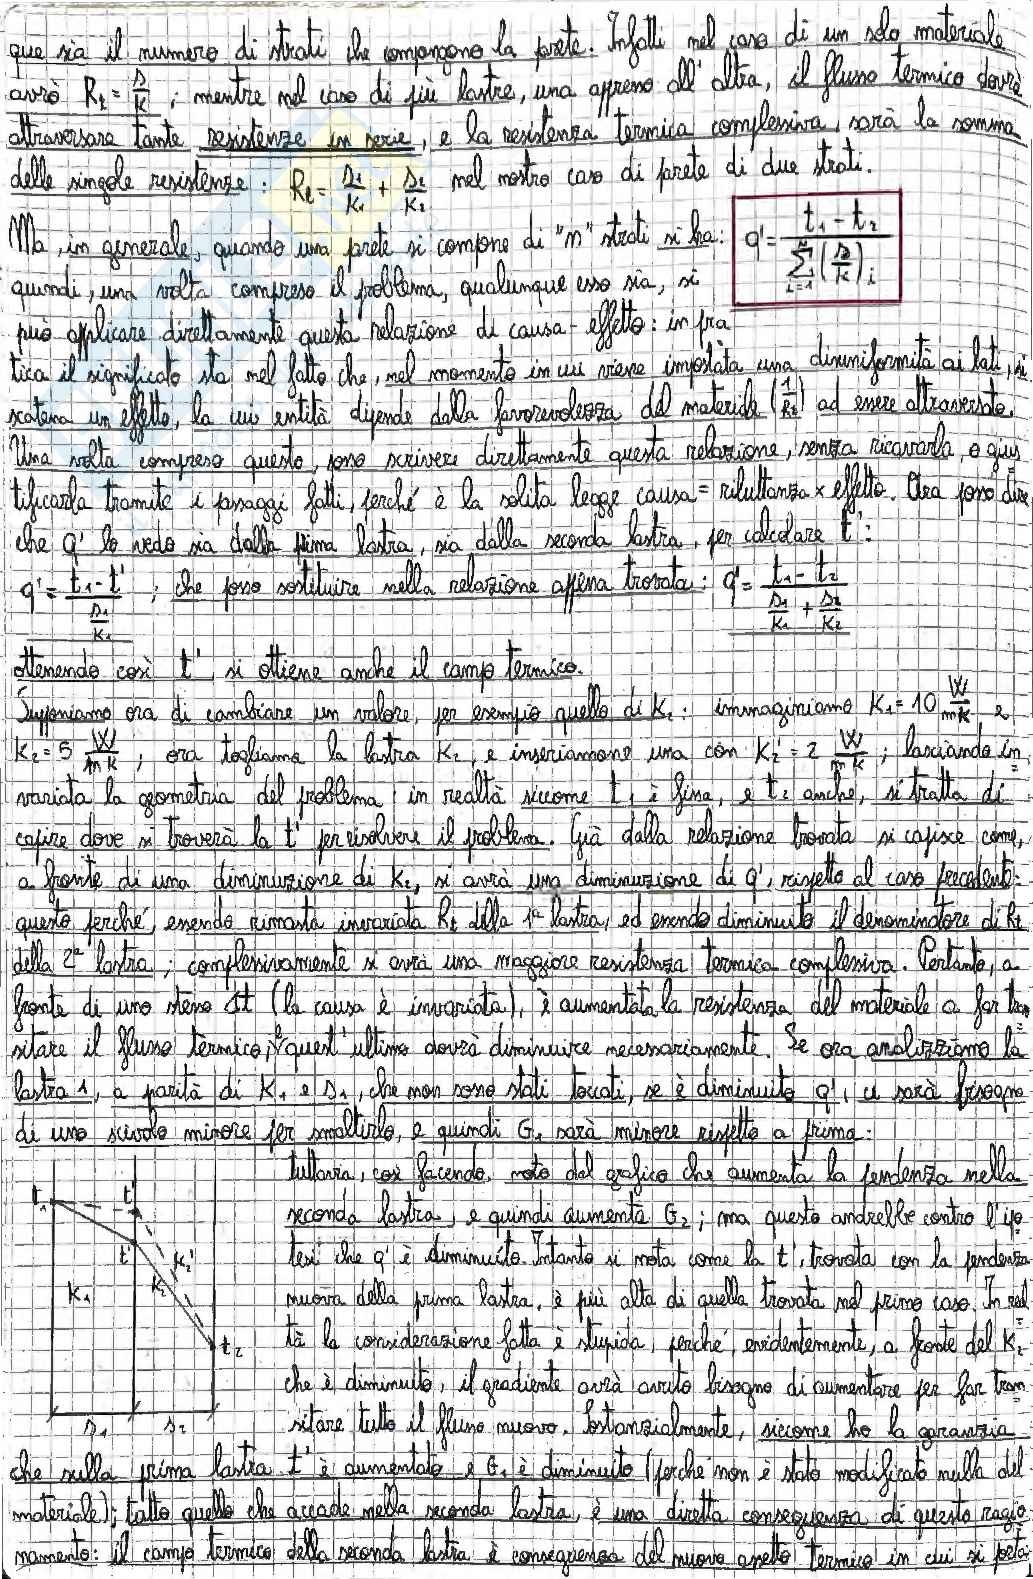 que sia il numero di strati che compongono la parete. Infatti nel caso di un solo materiale
avrò Rt = s/k ; mentre nel caso di più lastre, una appresso all'altra, il flusso termico dovrà
attraversare tante resistenze in serie, e la resistenza termica complessiva, sarà la somma
delle singole resistenze: Rt = s1/k1 + s2/k2 nel nostro caso di parete di due strati.
Ma, in generale, quando una parete si compone di "n" strati si ha: q' = (t1 - t2) / Σ(i=1, n) (s/k)i
quindi, una volta compreso il problema, qualunque esso sia, si
può applicare direttamente questa relazione di causa-effetto: in pra
tica il significato sta nel fatto che, nel momento in cui viene impostata una disuniformità ai lati, si
scatena un effetto, la cui entità dipende dalla favorevolezza del materiale (1/Rt) ad essere attraversato.
Una volta compreso questo, posso scrivere direttamente questa relazione, senza ricavarla, o gius
tificarla tramite i passaggi fatti, perché è la solita legge causa = riluttanza × effetto. Ora posso dire
che q' lo vedo sia dalla prima lastra, sia dalla seconda lastra, per calcolare t':
q' = (t1 - t') / (s1/k1) ; che posso sostituire nella relazione appena trovata: q' = (t1 - t2) / (s1/k1 + s2/k2)
ottenendo così t', si ottiene anche il campo termico.
Supponiamo ora di cambiare un valore, per esempio quello di k2: immaginiamo k1 = 10 W/mk e
k2 = 5 W/mk ; ora togliamo la lastra k2, e inseriamone una con k2' = 2 W/mk ; lasciando in
variata la geometria del problema; in realtà siccome t1 è fissa, e t2 anche, si tratta di
capire dove si troverà la t' per risolvere il problema. Già dalla relazione trovata si capisce come,
a fronte di una diminuzione di k2, si avrà una diminuzione di q', rispetto al caso precedente:
questo perché, essendo rimasta invariata Rt della 1ª lastra, ed essendo diminuito il denominatore di Rt
della 2ª lastra; complessivamente si avrà una maggiore resistenza termica complessiva. Pertanto, a
fronte di uno stesso Δt (la causa è invariata), è aumentata la resistenza del materiale a far tran
sitare il flusso termico, e quest'ultimo dovrà diminuire necessariamente. Se ora analizziamo la
lastra 1, a parità di k1 e s1, che non sono stati toccati, se è diminuito q', ci sarà bisogno
di uno scivolo minore per smaltirlo, e quindi G1 sarà minore rispetto a prima:
tuttavia, così facendo, noto dal grafico che aumenta la pendenza nella
seconda lastra, e quindi aumenta G2; ma questo andrebbe contro l'ipo
tesi che q' è diminuito. Intanto si nota come la t', trovata con la pendenza
nuova della prima lastra, è più alta di quella trovata nel primo caso. In real
tà la considerazione fatta è stupida, perché, evidentemente, a fronte del k2
che è diminuito, il gradiente avrà avuto bisogno di aumentare per far tran
sitare tutto il flusso nuovo. Sostanzialmente, siccome ho la garanzia
t1
t'
t'
k2'
k1
k2
t2
s1
s2
che sulla prima lastra t' è aumentato e G1 è diminuito (perché non è stato modificato nulla del
materiale); tutto quello che accade nella seconda lastra, è una diretta conseguenza di questo ragio
namento: il campo termico della seconda lastra è conseguenza del nuovo assetto termico in cui si porta,